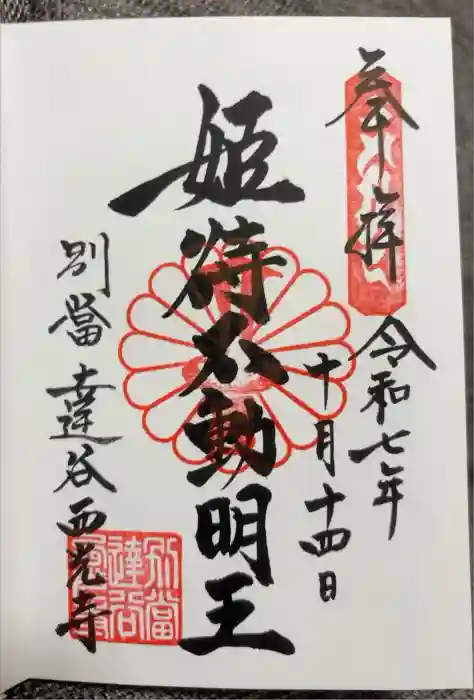 奉拝
令和七年
十月十四日
姫待不動明王
別當達谷西光寺
別當
達谷